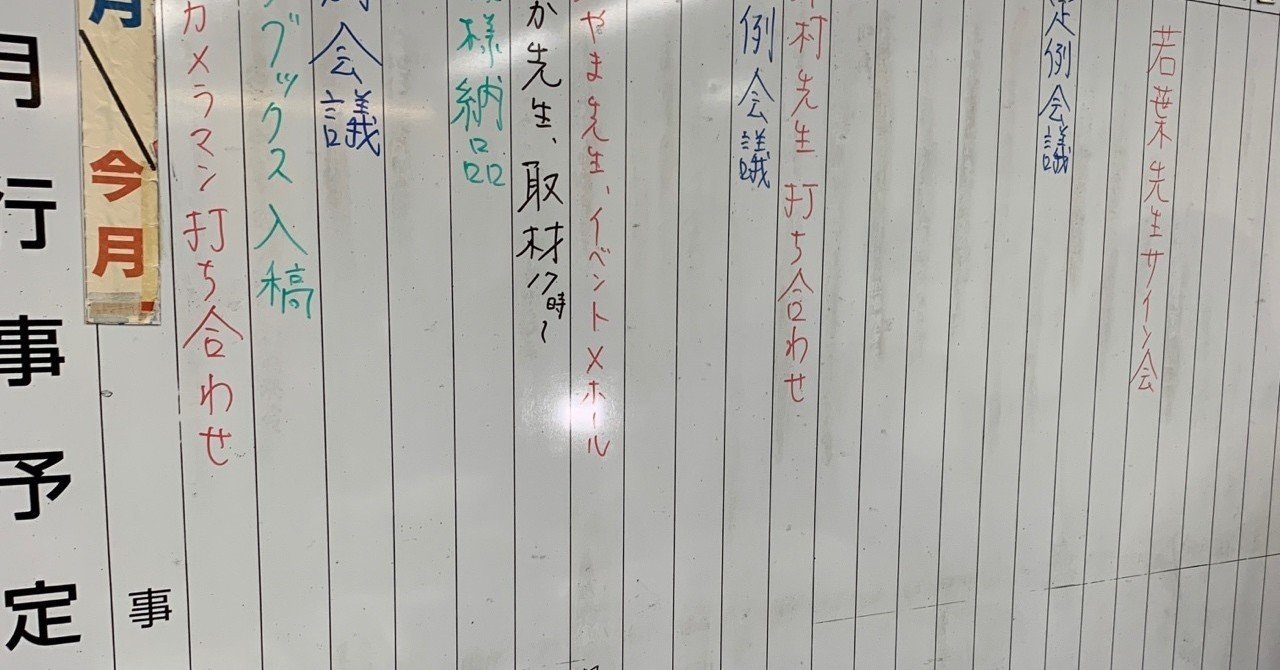 月行事予定
月
今月
事
カメラマン打ち合わせ
ブックス入稿
会議
様納品
か先生、取材17時〜
やま先生、イベントメホール
例会議
村先生 打ち合わせ
定例会議
若葉先生サイン会